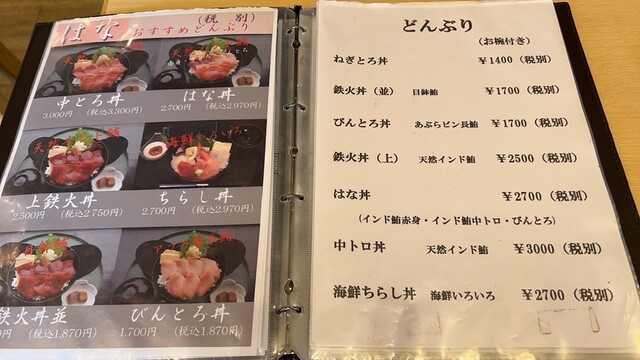 はな
(税 別)
おすすめどんぶり
中とろ丼
3.000円 (税込3.300円)
はな丼
2.700 (税込2.970円)
上鉄火丼
2.500円 (税込2.750円)
海鮮いろいろ
ちらし丼
2.700円 (税込2.970円)
鉄火丼並
(税込1.870円)
びんとろ丼
1.700円 (税込1.870円)
どんぶり
(お椀付き)
ねぎとろ丼 ¥1400 (税別)
鉄火丼 (並) 目鉢鮪 ¥1700 (税別)
びんとろ丼 あぶらビン長鮪 ¥1700 (税別)
鉄火丼 (上) 天然インド鮪 ¥2500 (税別)
はな丼 ¥2700 (税別)
(インド鮪赤身・インド鮪中トロ・びんとろ)
中トロ丼 天然インド鮪 ¥3000 (税別)
海鮮ちらし丼 海鮮いろいろ ¥2700 (税別)